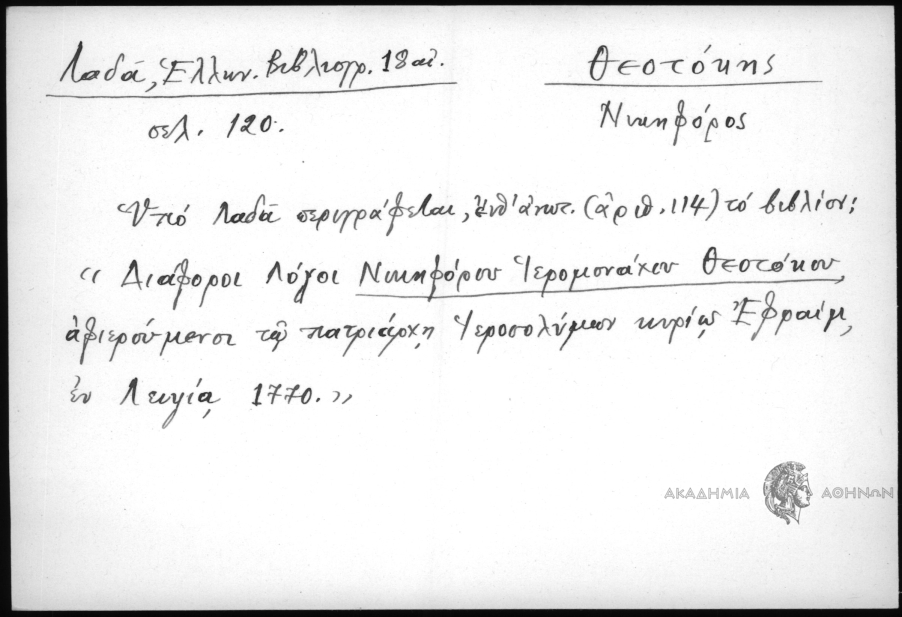 Λαδᾶ, Ἑλλην. Βιβλιογρ. 18 αἰ.
σελ. 120.
Θεοτόκης
Νικηφόρος
Ὑπό Λαδᾶ περιγράφεται, ἔνθ' ἀνωτ. (ἀριθ. 114) τό βιβλίον:
« Διάφοροι Λόγοι Νικηφόρου Ἱερομονάχου Θεοτόκου,
ἀφιερούμενοι τῷ πατριάρχῃ Ἱεροσολύμων κυρίῳ Ἐφραίμ,
ἐν Λειψίᾳ, 1770. »
ΑΚΑΔΗΜΙΑ ΑΘΗΝΩΝ